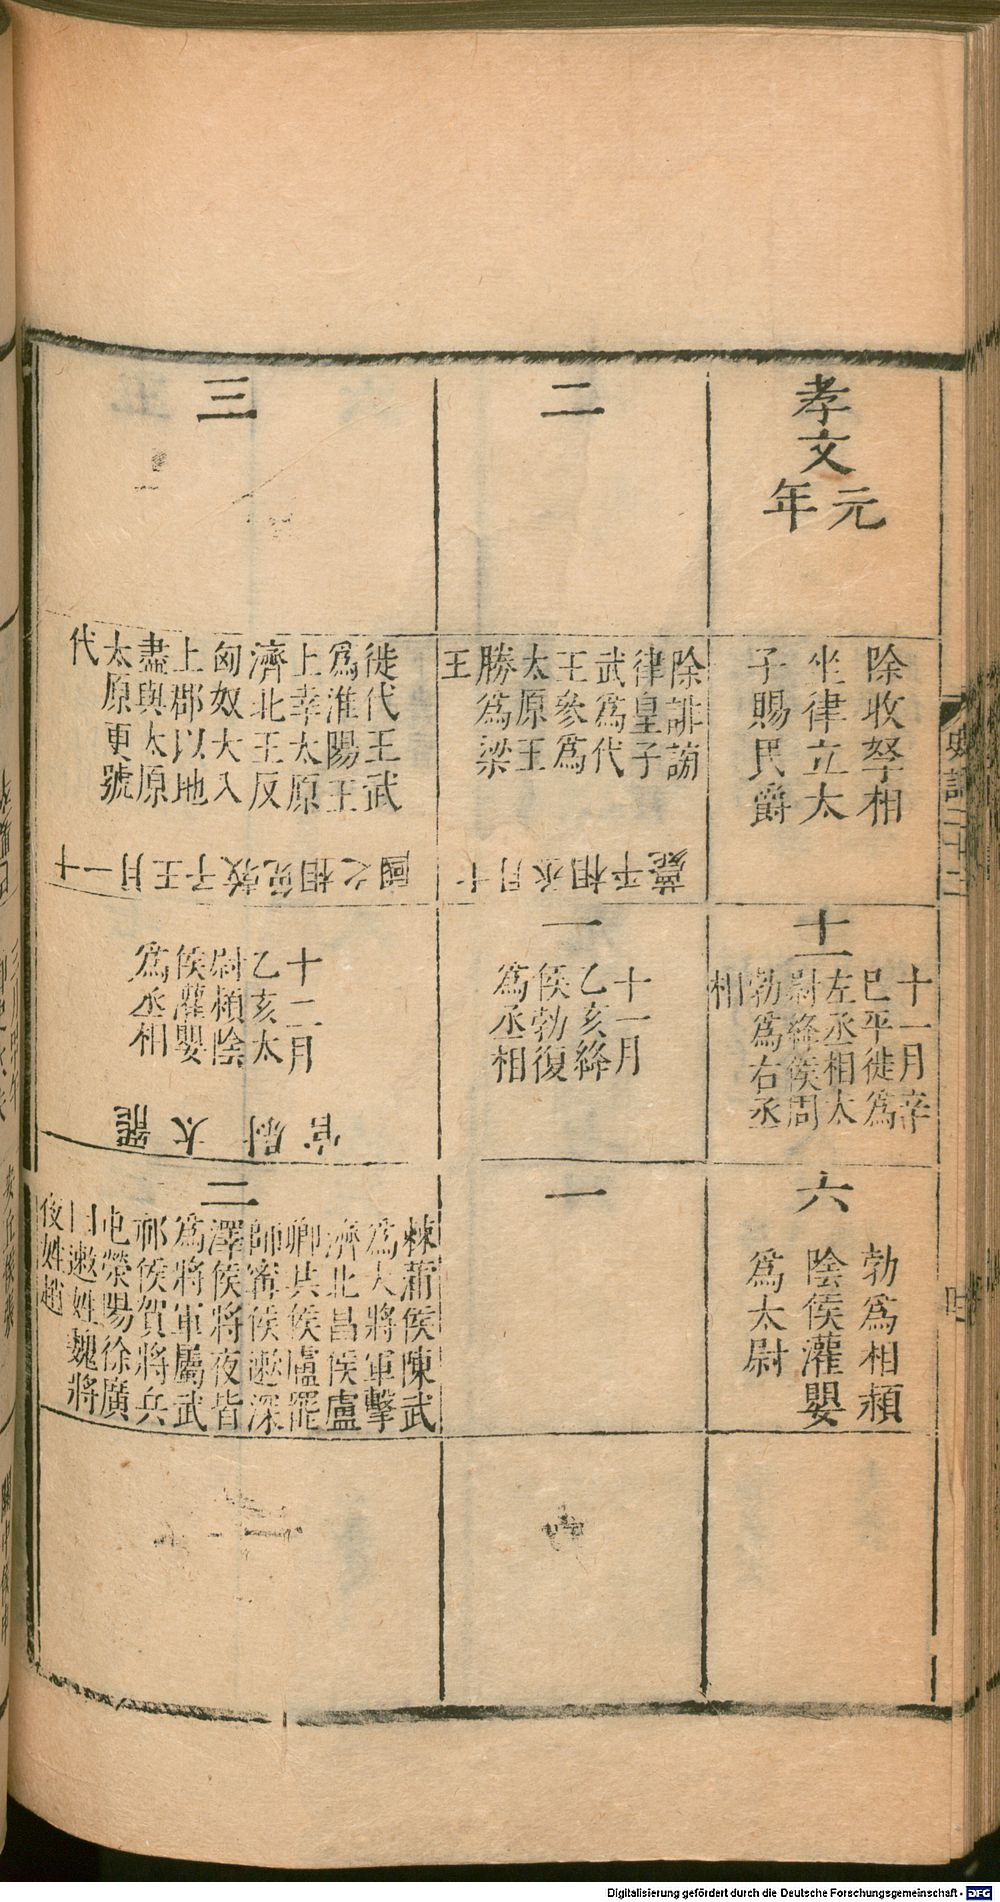 孝文
元年
除收孥相
坐律立太
子賜民爵
十一
十一月辛
巳平徙為
左丞相太
尉絳侯周
勃為右丞
相
六
勃為相頴
陰侯灌嬰
為太尉
二
除誹謗
律皇子
武為代
王參為
太原王
勝為梁
王
十月丞相平薨
一
十一月
乙亥絳
侯勃復
為丞相
一
三
徙代王武
為淮陽王
上幸太原
濟北王反
匈奴大入
上郡以地
盡與太原
太原更號
代
十一月壬子
相
之國
十二月
乙亥太
尉頴陰
侯灌嬰
為丞相
罷太尉官
二
棘蒲侯陳武
為大將軍擊
濟北昌侯盧
卿共侯盧罷
師甯侯遬深
澤侯將夜皆
為將軍屬武
祁侯賀將兵
屯滎陽徐廣
曰遬姓魏將
夜姓趙
Digitalisierung gefördert durch die Deutsche Forschungsgemeinschaft - DFG